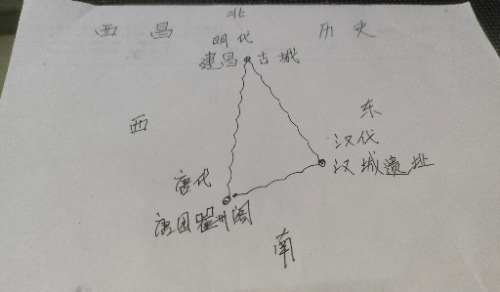 北
西昌 历史
明代
建昌古城
西 东
汉代
汉城遗址
唐代
唐园瞿州阁
南